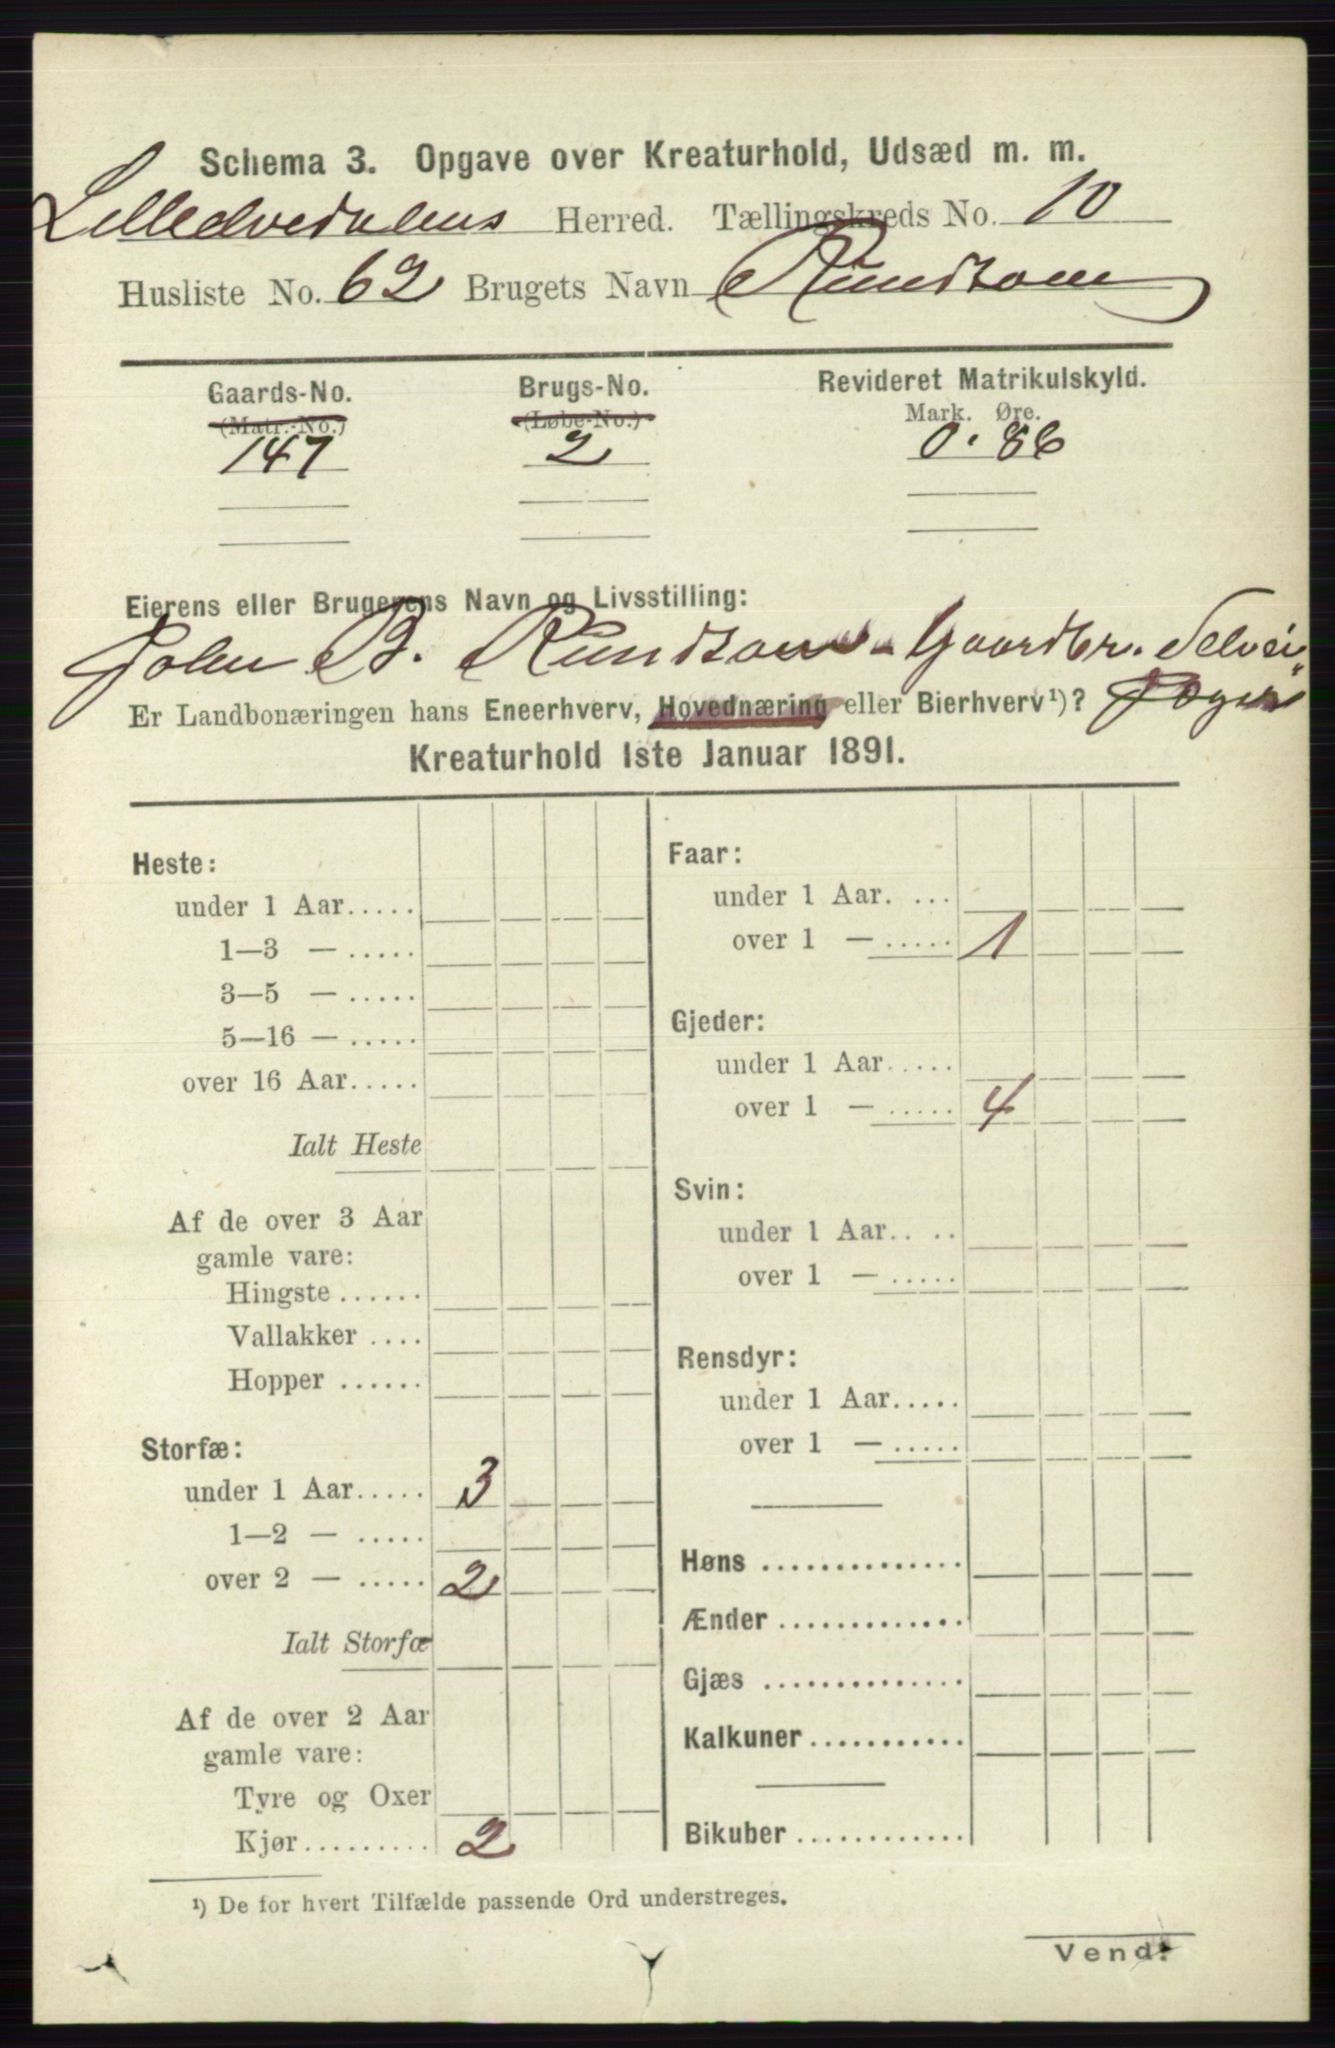 Schema 3. Opgave over Kreaturhold, Udsæd m. m.
Lilledvedalens Herred. Tællingskreds No. 10
Husliste No. 62 Brugets Navn Rundtom
Gaards-No. Brugs-No. Revideret Matrikulskyld.
(Matr.-No.) (Løbe-No.) Mark. Øre.
147 2 0.86
Eierens eller Brugerens Navn og Livsstilling:
John B. Rundtom - Gaardbr. Selvei
Er Landbonæringen hans Eneerhverv, Hovednæring eller Bierhverv¹)?
Kreaturhold 1ste Januar 1891.
Heste:
under 1 Aar.....
1—3 — .....
3—5 — .....
5—16 — .....
over 16 Aar.....
Ialt Heste
Af de over 3 Aar
gamle vare:
Hingste ......
Vallakker ....
Hopper ......
Storfæ:
under 1 Aar..... 3
1—2 — .....
over 2 — ..... 2
Ialt Storfæ
Af de over 2 Aar
gamle vare:
Tyre og Oxer
Kjør......... 2
Faar:
under 1 Aar. ...
over 1 — ..... 1
Gjeder:
under 1 Aar.....
over 1 — ..... 4
Svin:
under 1 Aar.. ..
over 1 — .....
Rensdyr:
under 1 Aar.....
over 1 — .....
Høns ..............
Ænder .............
Gjæs ..............
Kalkuner ...........
Bikuber .............
¹) De for hvert Tilfælde passende Ord understreges.
Vend.